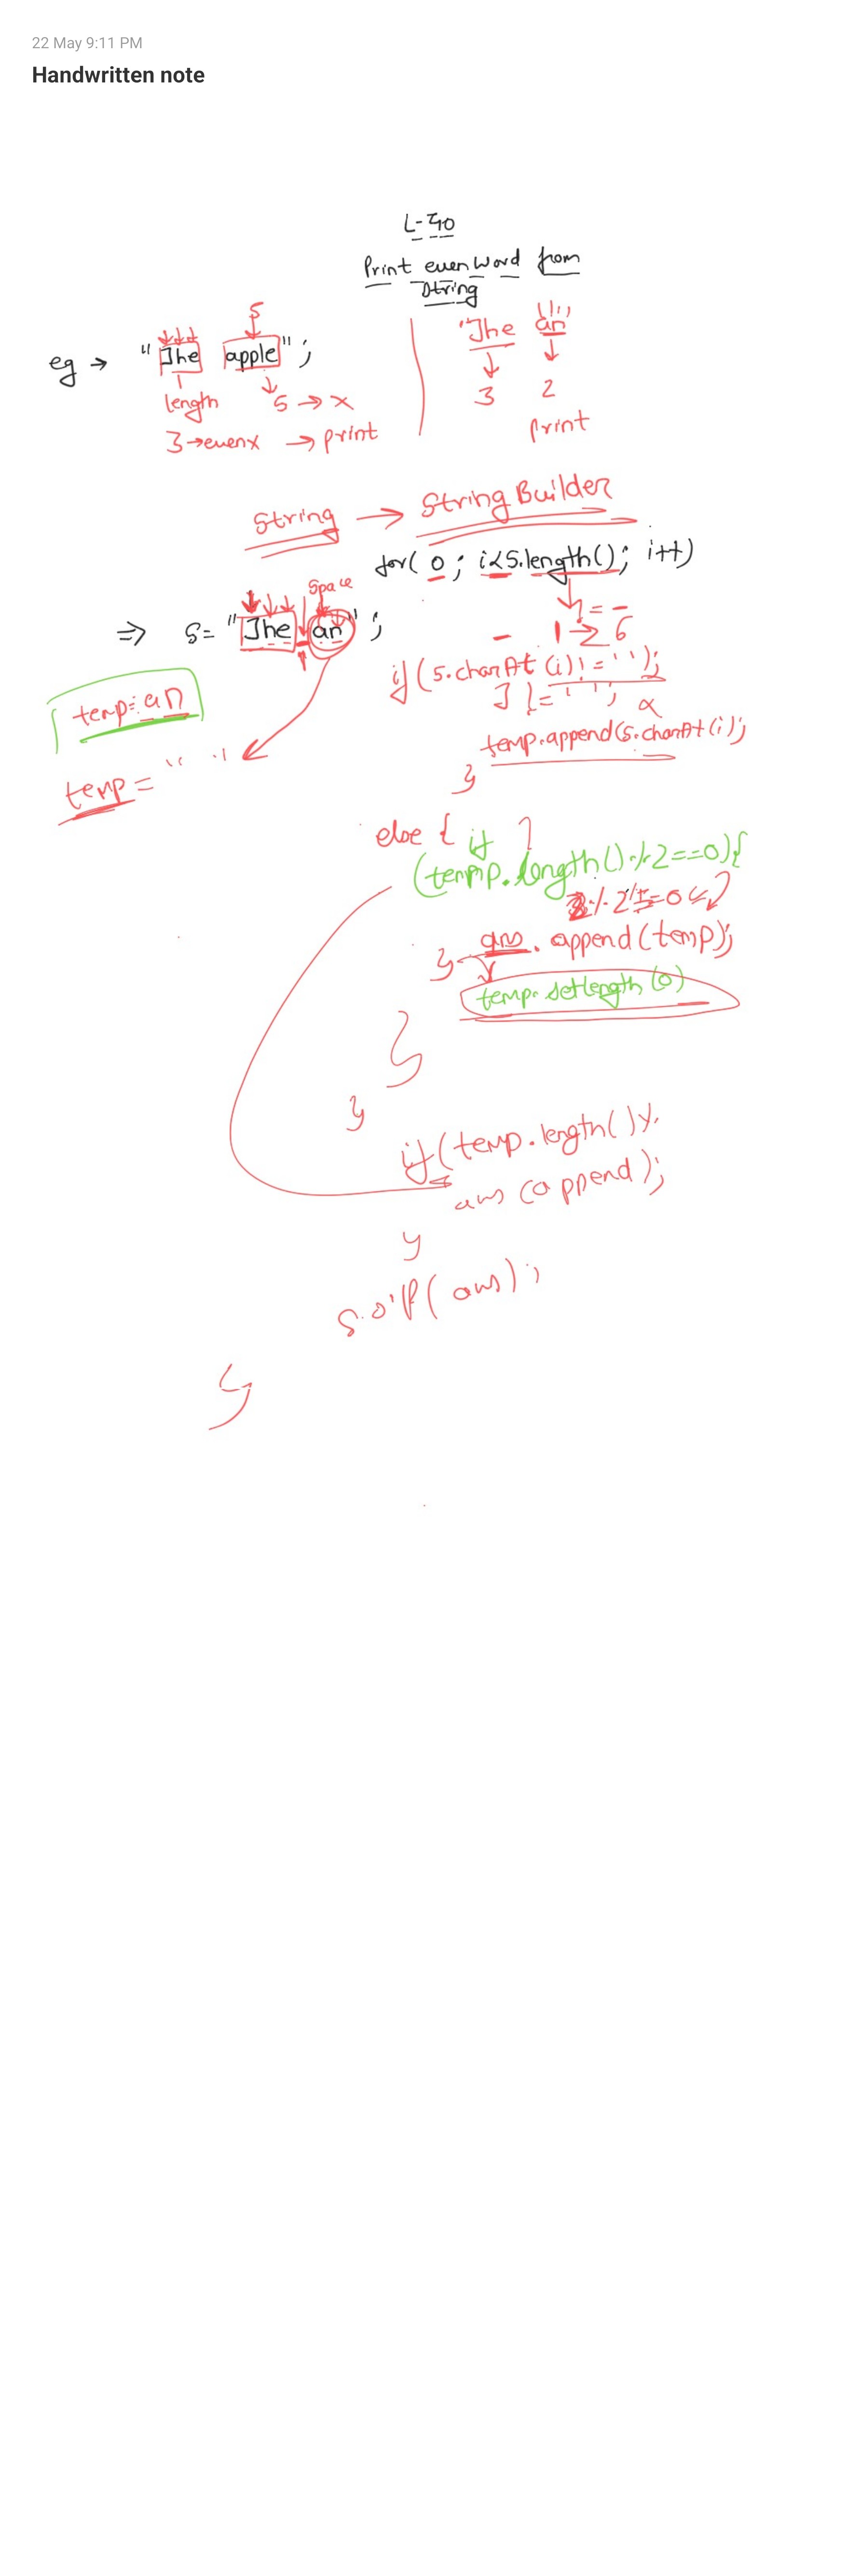 22 May 9:11 PM
Handwritten note
L-40
Print even word from
String
eg → "The apple";
5
length
5 → x
3→evenx → print
"The an"
3 2
print
String → String Builder
for( 0 ; i<s.length(); i++)
Space
⇒ s= "The an" ;
1 → 6
if (s.charAt (i) != ' ');
J != ' ';
temp:an
temp.append(s.charAt(i);
}
temp = " "
else { if
(temp.length()%2==0){
% 2 == 0
ans. append(temp);
}
temp. setlength (0)
}
}
if(temp.length()%
ans (append);
}
S.o.p( ans);
}